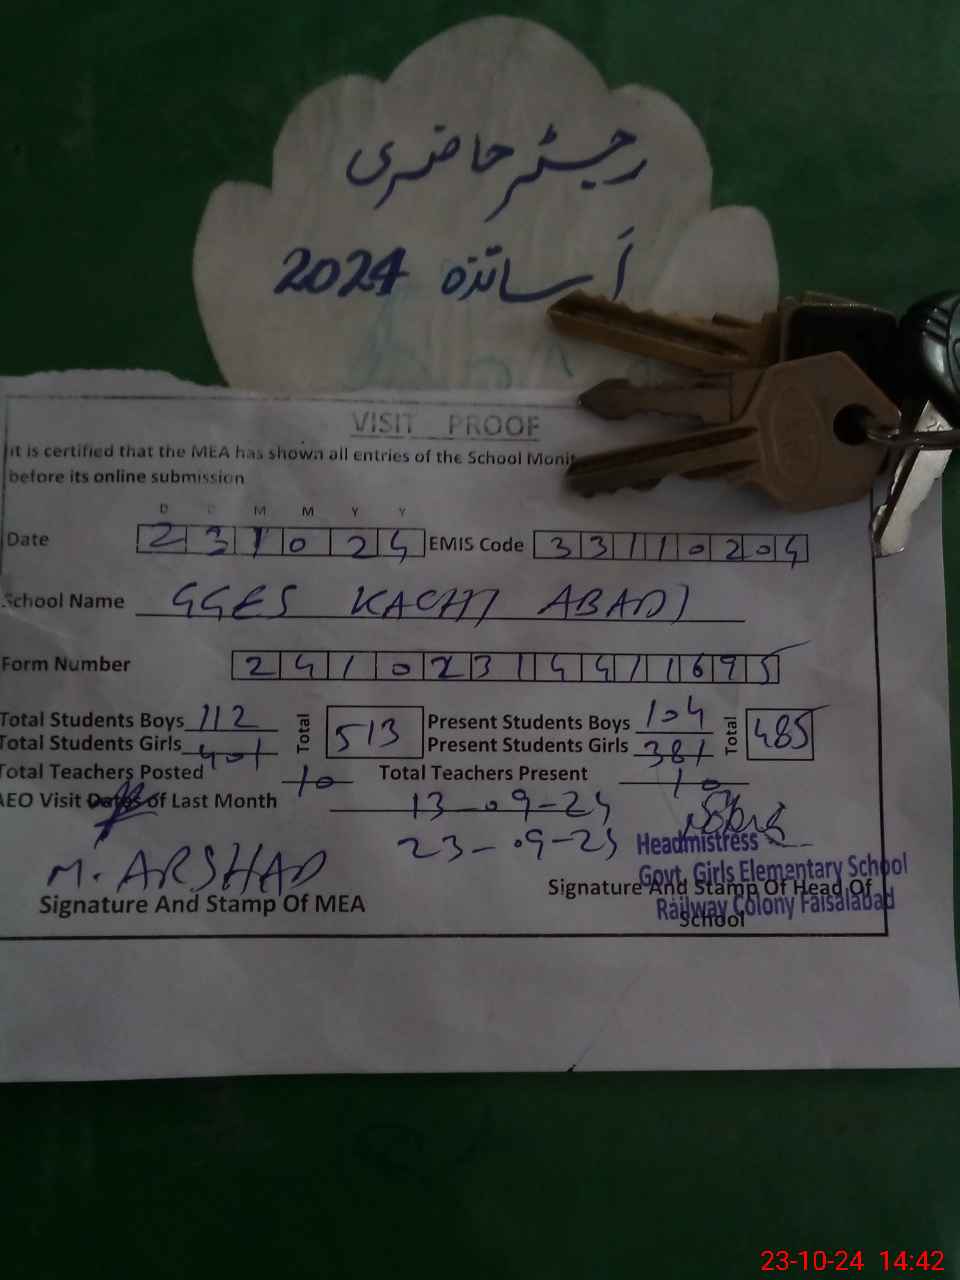 رجسٹر حاضری
اَساتذہ 2024
VISIT PROOF
it is certified that the MEA has shown all entries of the School Monit
before its online submission
D D M M Y Y
Date 231024 EMIS Code 33110204
School Name GGES KACHI ABADI
Form Number 24102314411695
Total Students Boys 112 Total 513 Present Students Boys 104 Total 485
Total Students Girls 401 Present Students Girls 381
Total Teachers Posted 10 Total Teachers Present 10
AEO Visit Dates of Last Month 13-09-24
23-09-24
M. ARSHAD
Signature And Stamp Of MEA
Headmistress
Govt. Girls Elementary School
Railway Colony Faisalabad
Signature And Stamp Of Head Of
School
23-10-24 14:42